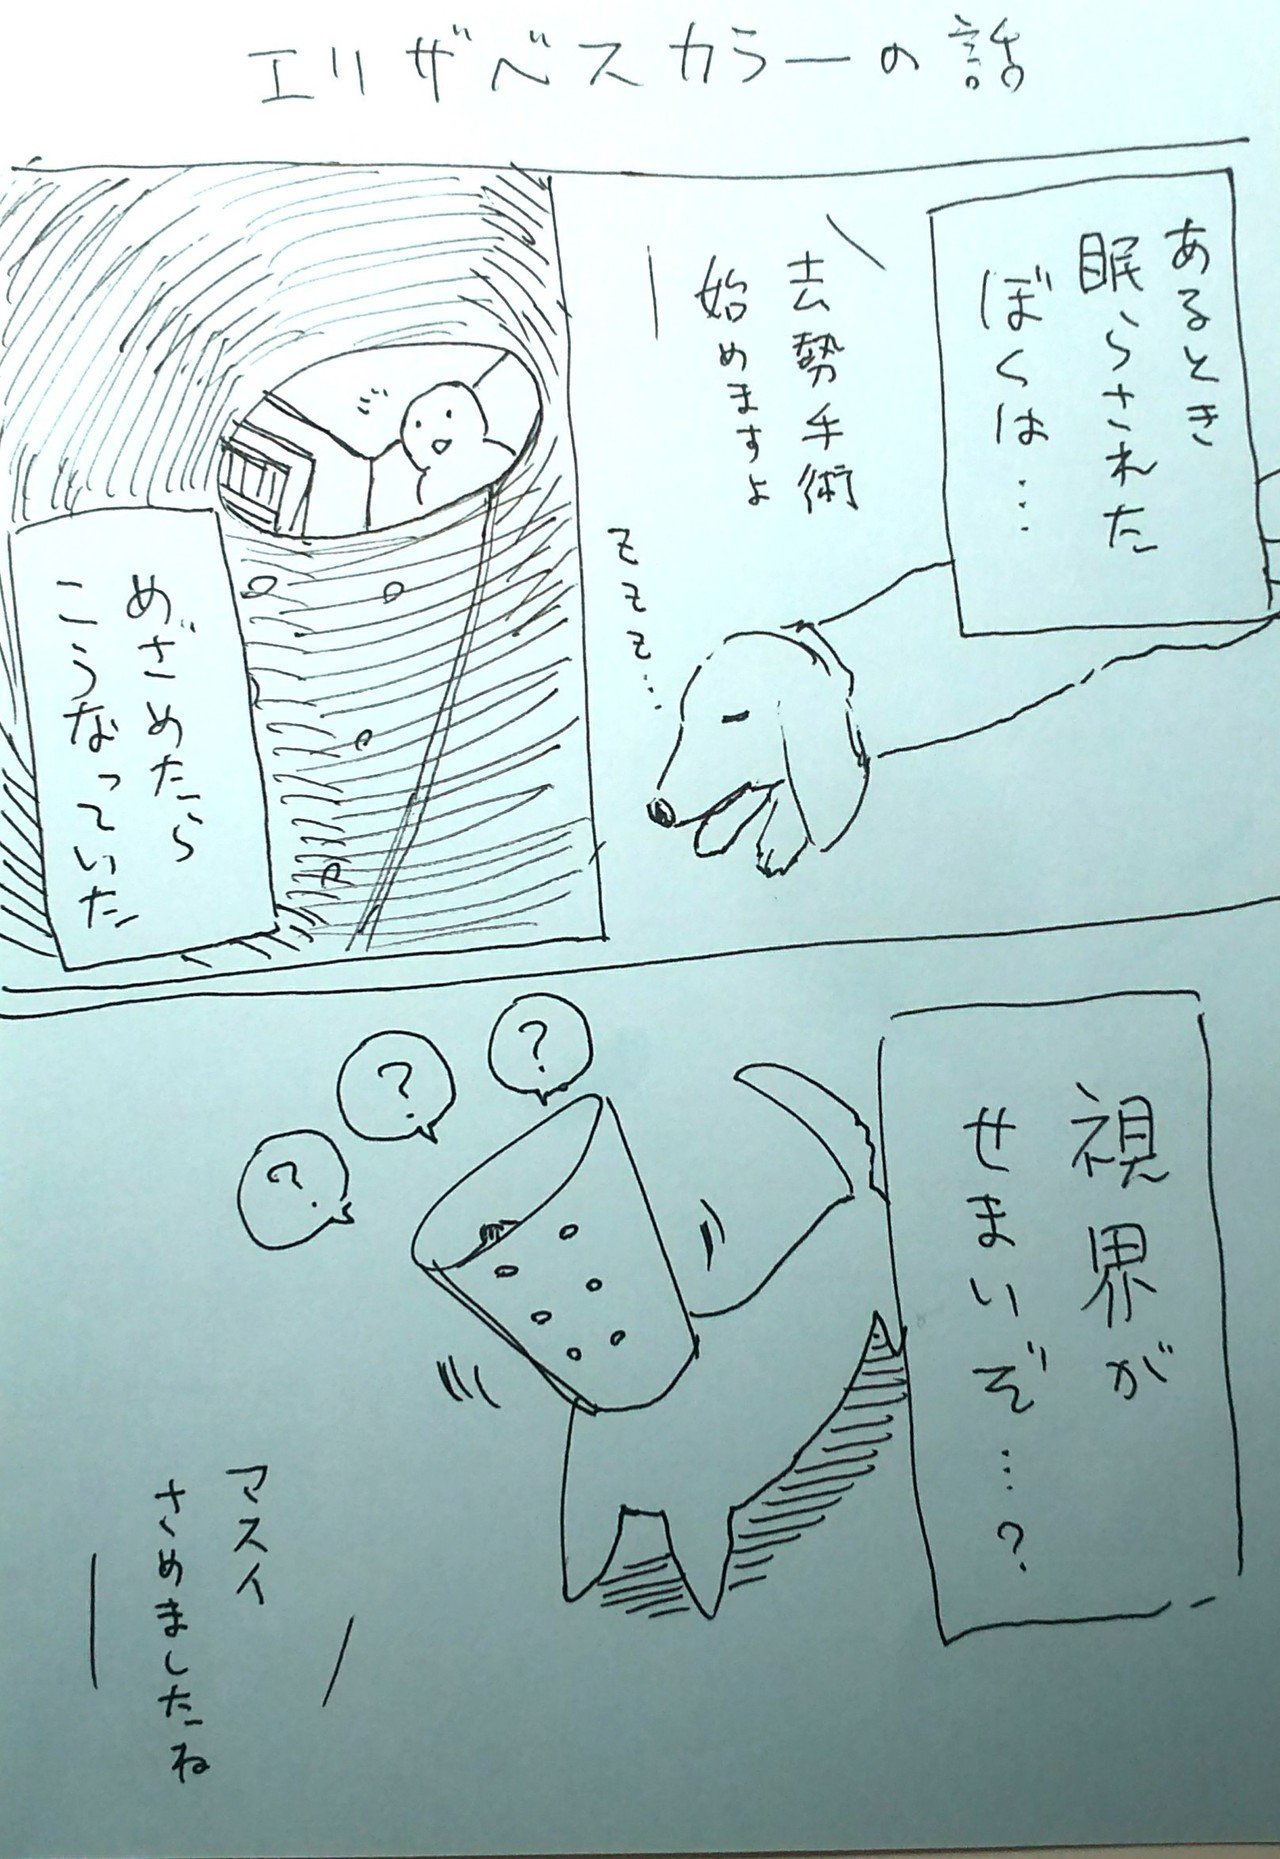 エリザベスカラーの話
あるとき
眠らされた
ぼくは…
去勢手術
始めますよ
ZZZ…
めざめたら
こうなっていた
視界が
せまいぞ…?
?
?
?
マスイ
さめましたね